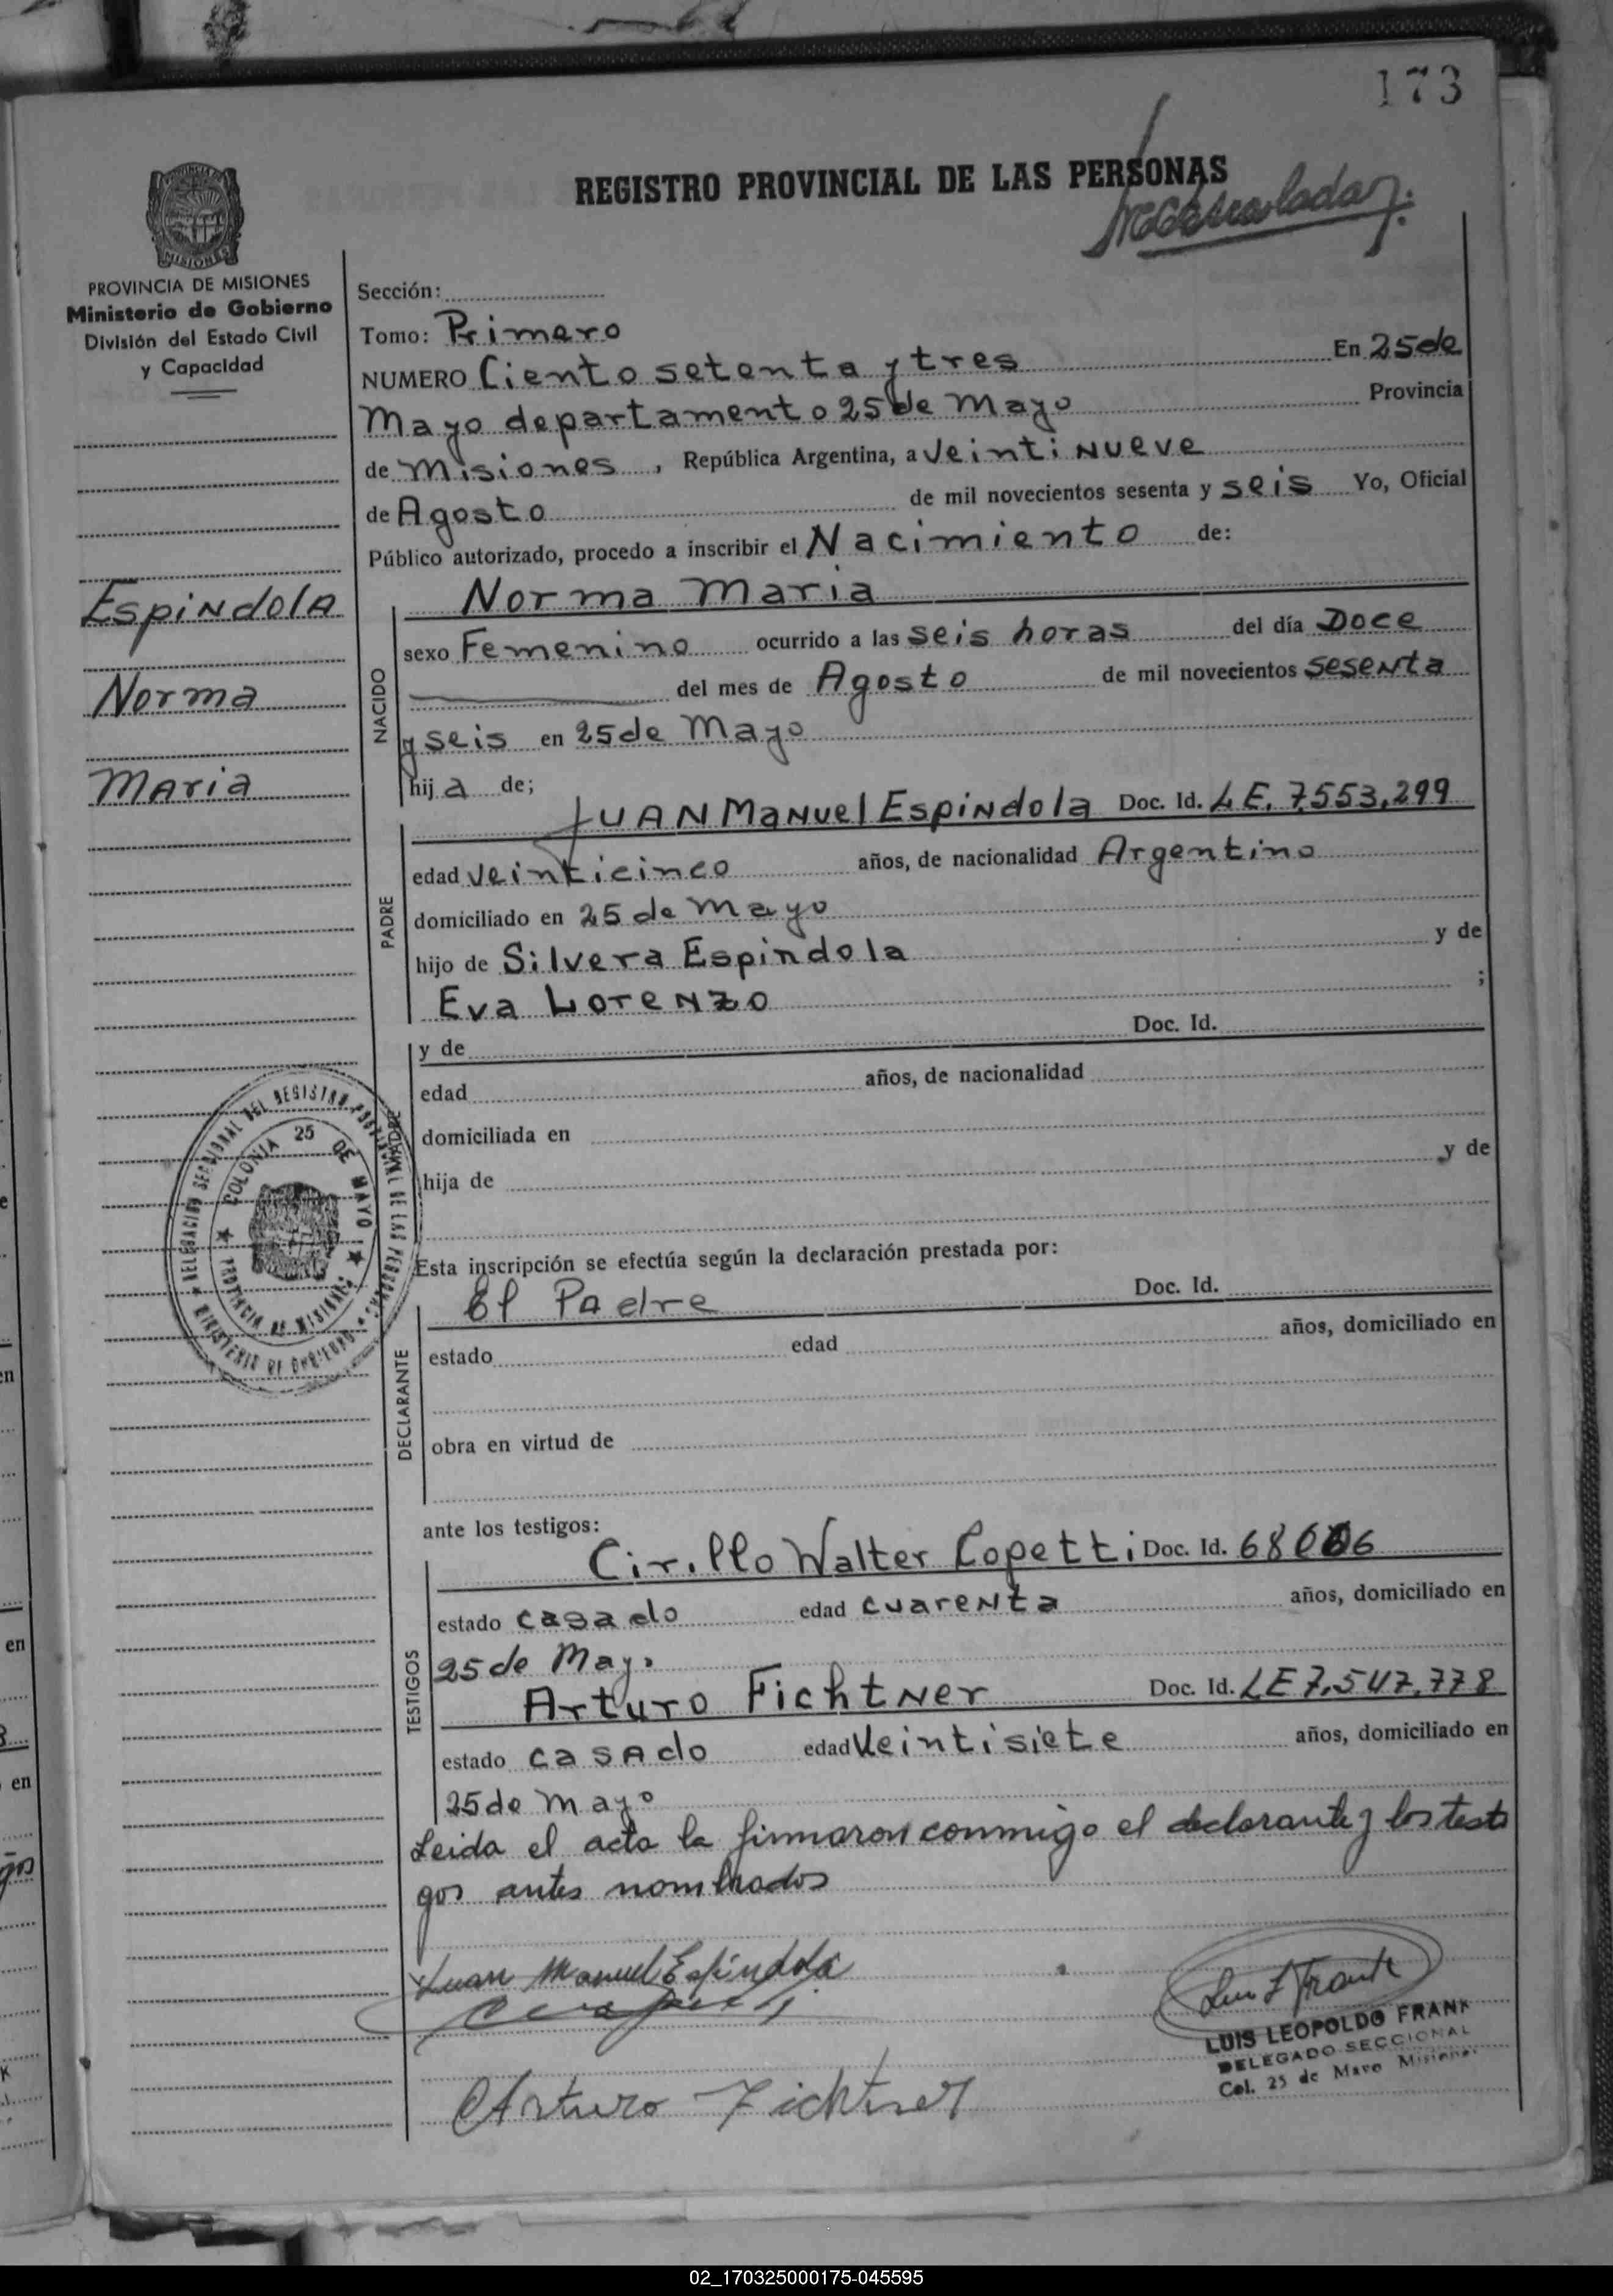 173
REGISTRO PROVINCIAL DE LAS PERSONAS
MISIONES
PROVINCIA DE MISIONES
Ministerio de Gobierno
División del Estado Civil
y Capacidad
Sección:
Tomo: Primero
NUMERO Ciento setenta y tres En 25 de
Mayo departamento 25 de Mayo Provincia
de Misiones, República Argentina, a veinti nueve
de Agosto de mil novecientos sesenta y seis Yo, Oficial
Público autorizado, procedo a inscribir el Nacimiento de:
Espindola
Norma
Maria
NACIDO
Norma Maria
sexo Femenino ocurrido a las seis horas del día Doce
del mes de Agosto de mil novecientos sesenta
y seis en 25 de Mayo
hija de;
PADRE
Juan Manuel Espindola Doc. Id. L E. 7.553,299
edad veinticinco años, de nacionalidad Argentino
domiciliado en 25 de Mayo
hijo de Silvera Espindola y de
Eva Lorenzo ;
MADRE
y de Doc. Id.
edad años, de nacionalidad
domiciliada en
hija de y de
DELEGACION SECCIONAL DEL REGISTRO PROVINCIAL DE LAS PERSONAS
MINISTERIO DE GOBIERNO
COLONIA 25 DE MAYO
PROVINCIA DE MISIONES
Esta inscripción se efectúa según la declaración prestada por:
DECLARANTE
El Padre Doc. Id.
estado edad años, domiciliado en
obra en virtud de
ante los testigos:
TESTIGOS
Cirillo Walter Copetti Doc. Id.
estado casado edad cuarenta años, domiciliado en
25 de Mayo
Arturo Fichtner Doc. Id. LE 7.547.778
estado casado edad Veintisiete años, domiciliado en
25 de Mayo
Leida el acta la firmaron conmigo el declarante y los testi
gos antes nombrados
Juan Manuel Espíndola
Arturo Fichtner
Luis L Frank
LUIS LEOPOLDO FRANK
DELEGADO SECCIONAL
Col. 25 de Mayo Misiones
02_170325000175-045595